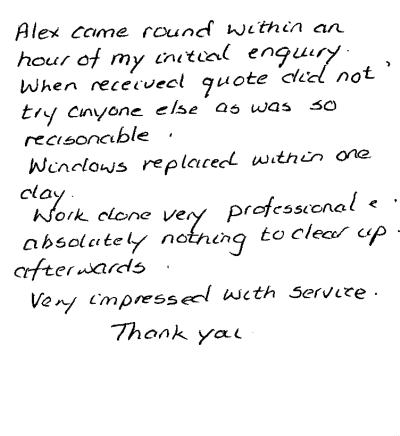 Alex came round within an
hour of my initial enquiry.
When received quote did not,
try anyone else as was so
reasonable.
Windows replaced within one
day.
Work done very professional &
absolutely nothing to clear up
afterwards.
Very impressed with service.
Thank you